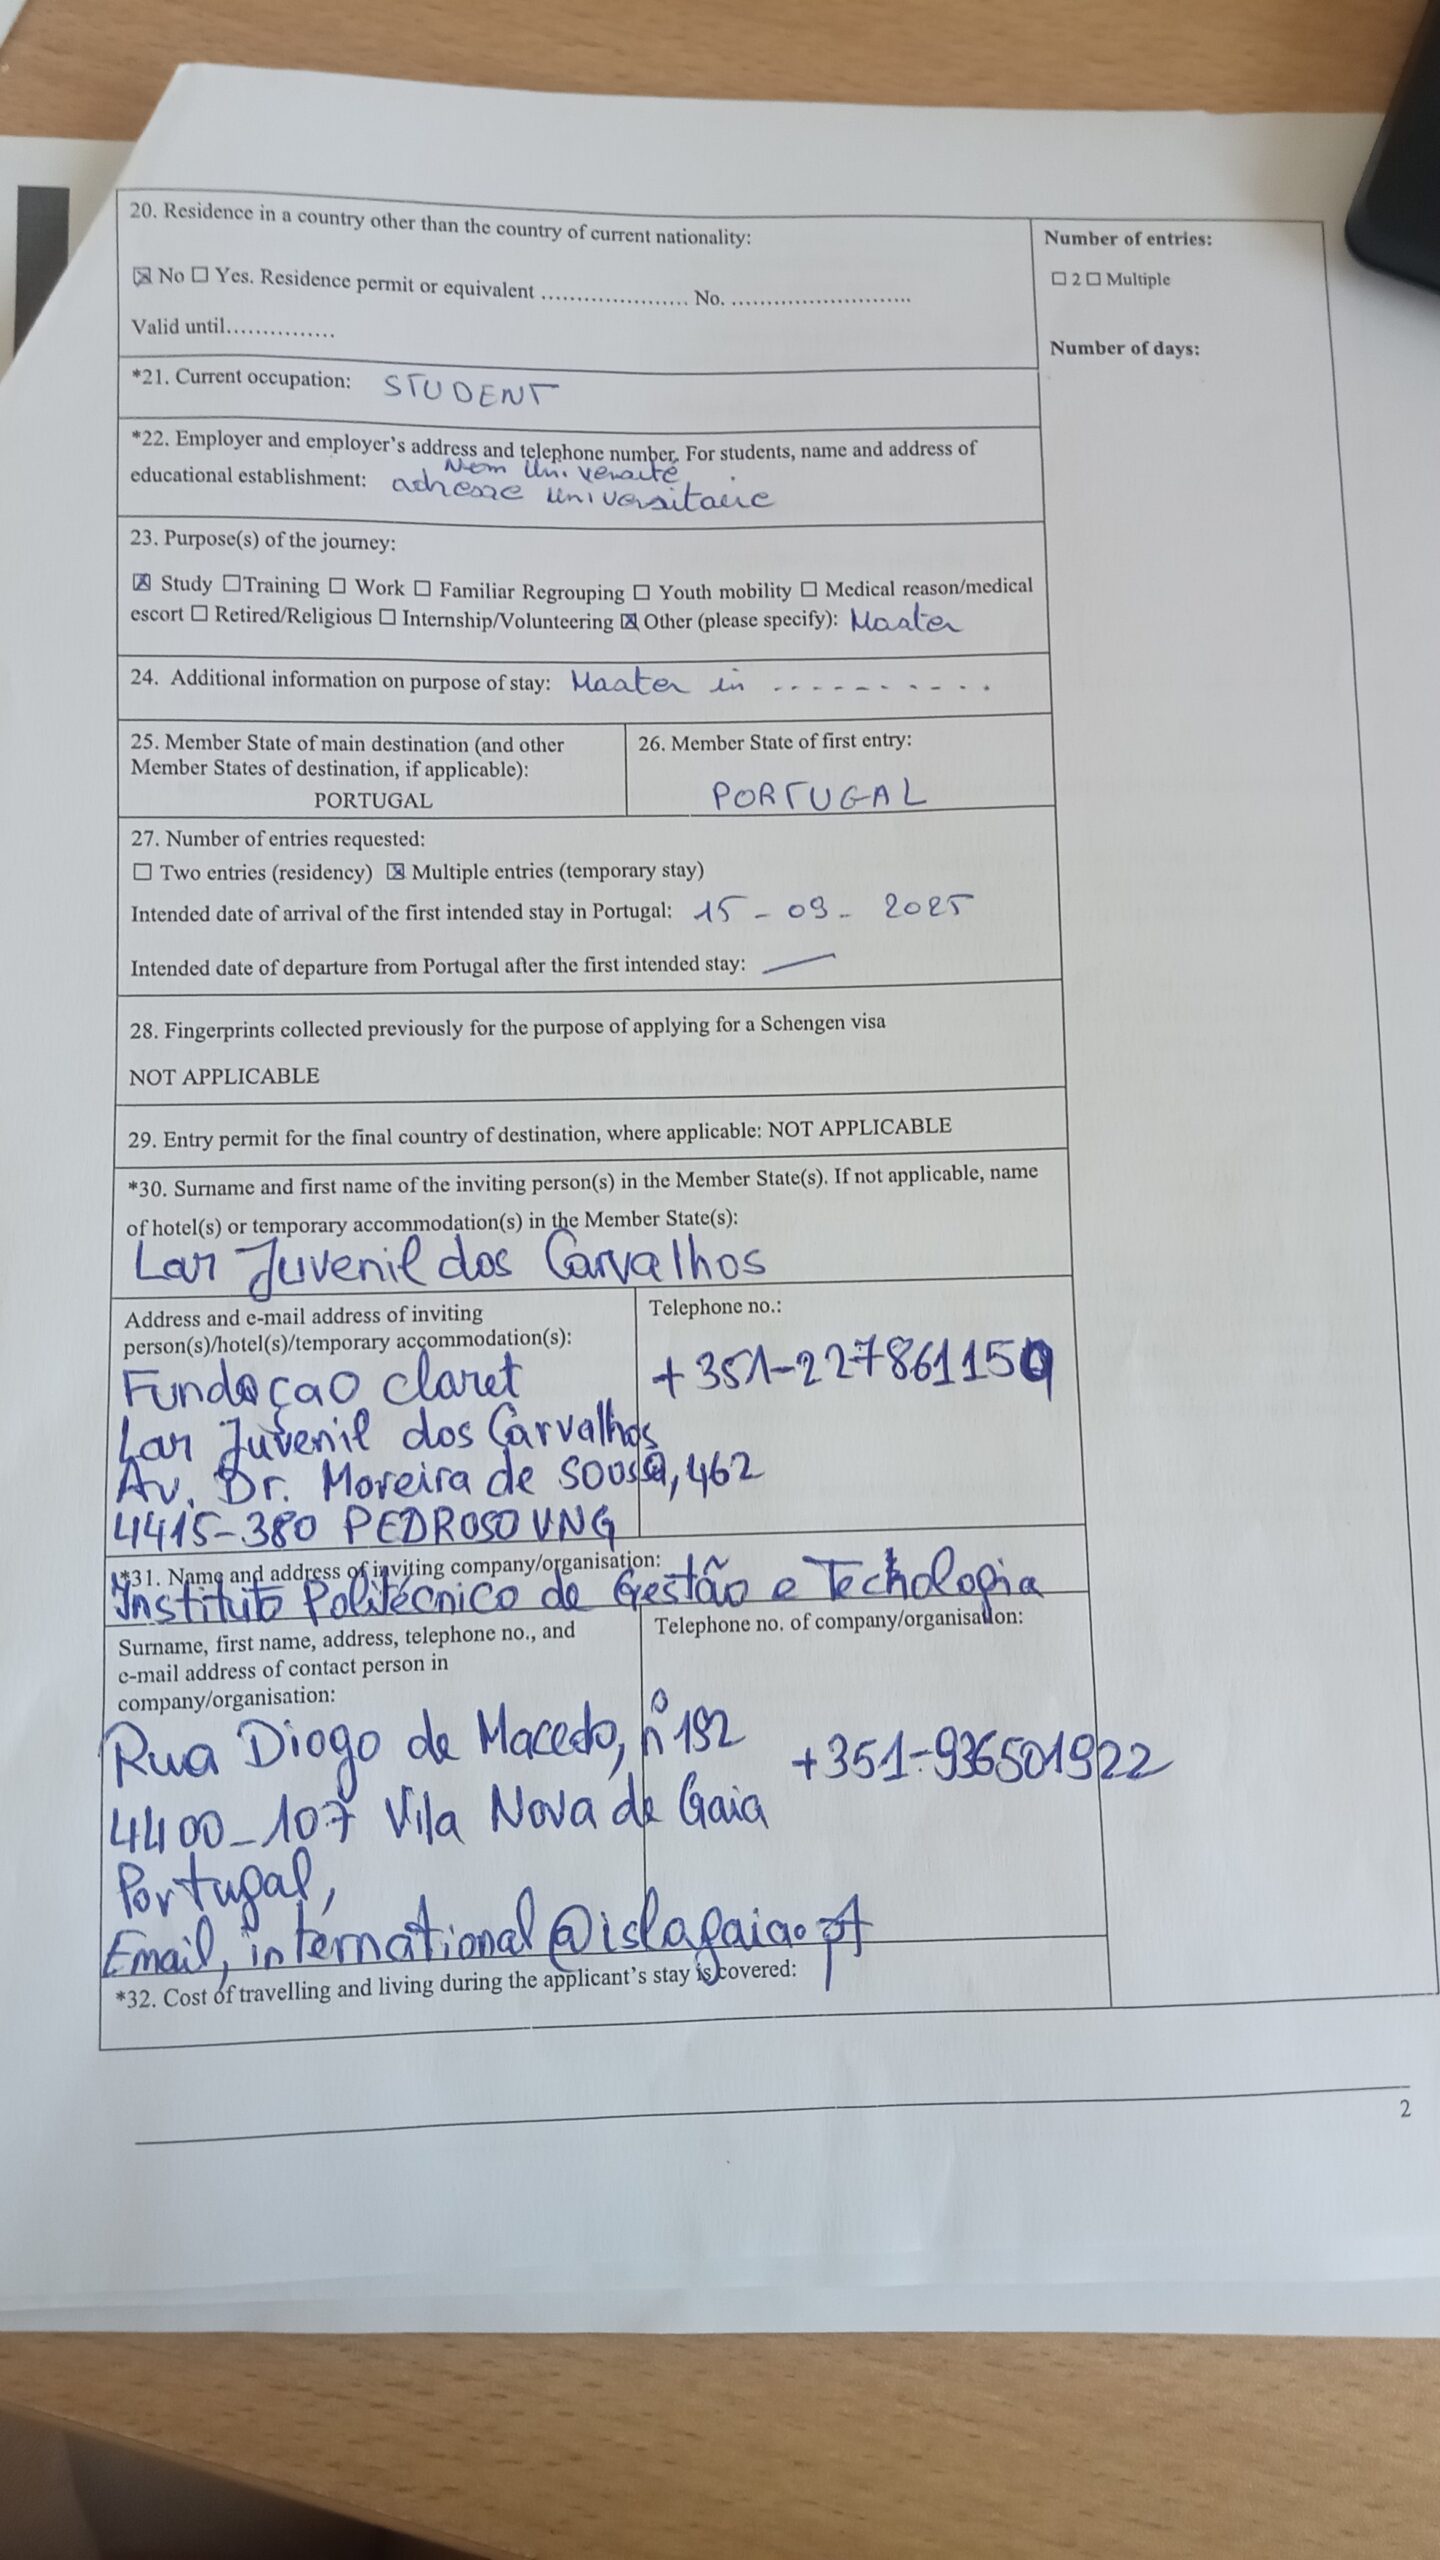 20. Residence in a country other than the country of current nationality:
☒ No ☐ Yes. Residence permit or equivalent ..................... No. ...........................
Valid until...............
Number of entries:
☐ 2 ☐ Multiple
Number of days:
*21. Current occupation: STUDENT
*22. Employer and employer's address and telephone number. For students, name and address of
educational establishment: Nom Université
adresse universitaire
23. Purpose(s) of the journey:
☒ Study ☐Training ☐ Work ☐ Familiar Regrouping ☐ Youth mobility ☐ Medical reason/medical
escort ☐ Retired/Religious ☐ Internship/Volunteering ☒ Other (please specify): Master
24. Additional information on purpose of stay: Master in - - - - - - - - - -
25. Member State of main destination (and other
Member States of destination, if applicable):
PORTUGAL
26. Member State of first entry:
PORTUGAL
27. Number of entries requested:
☐ Two entries (residency) ☒ Multiple entries (temporary stay)
Intended date of arrival of the first intended stay in Portugal: 15 - 09 - 2025
Intended date of departure from Portugal after the first intended stay: —
28. Fingerprints collected previously for the purpose of applying for a Schengen visa
NOT APPLICABLE
29. Entry permit for the final country of destination, where applicable: NOT APPLICABLE
*30. Surname and first name of the inviting person(s) in the Member State(s). If not applicable, name
of hotel(s) or temporary accommodation(s) in the Member State(s):
Lar Juvenil dos Carvalhos
Address and e-mail address of inviting
person(s)/hotel(s)/temporary accommodation(s):
Fundaçao claret
Lar Juvenil dos Carvalhos
Av. Dr. Moreira de Sousa, 462
4415-380 PEDROSO VNG
Telephone no.:
+351-227861150
*31. Name and address of inviting company/organisation:
Instituto Politécnico de Gestão e Technologia
Surname, first name, address, telephone no., and
e-mail address of contact person in
company/organisation:
Rua Diogo de Macedo, nº 192
4400-107 Vila Nova de Gaia
Portugal,
Email, international@islagaia.pt
Telephone no. of company/organisation:
+351-936501922
*32. Cost of travelling and living during the applicant's stay is covered:
2